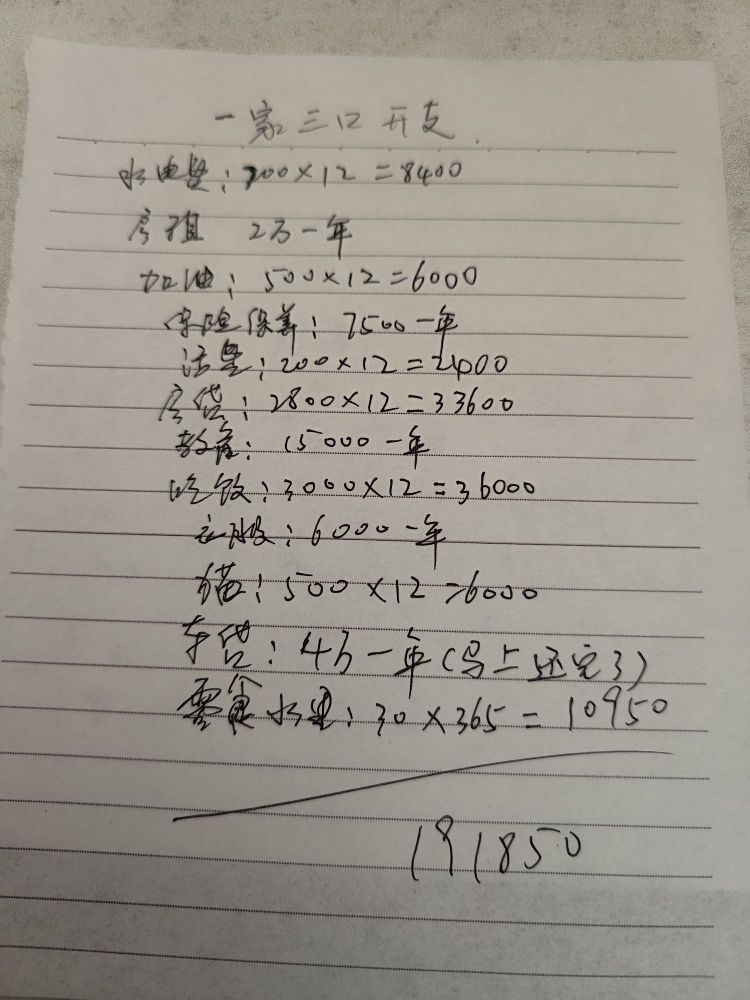 一家三口开支
水电费：700×12=8400
房租 2万一年
加油：500×12=6000
保险保养：7500一年
话费：200×12=2400
房贷：2800×12=33600
教育：15000一年
吃饭：3000×12=36000
衣服：6000一年
猫：500×12=6000
车贷：4万一年(马上还完了)
零食水果：30×365=10950
191850